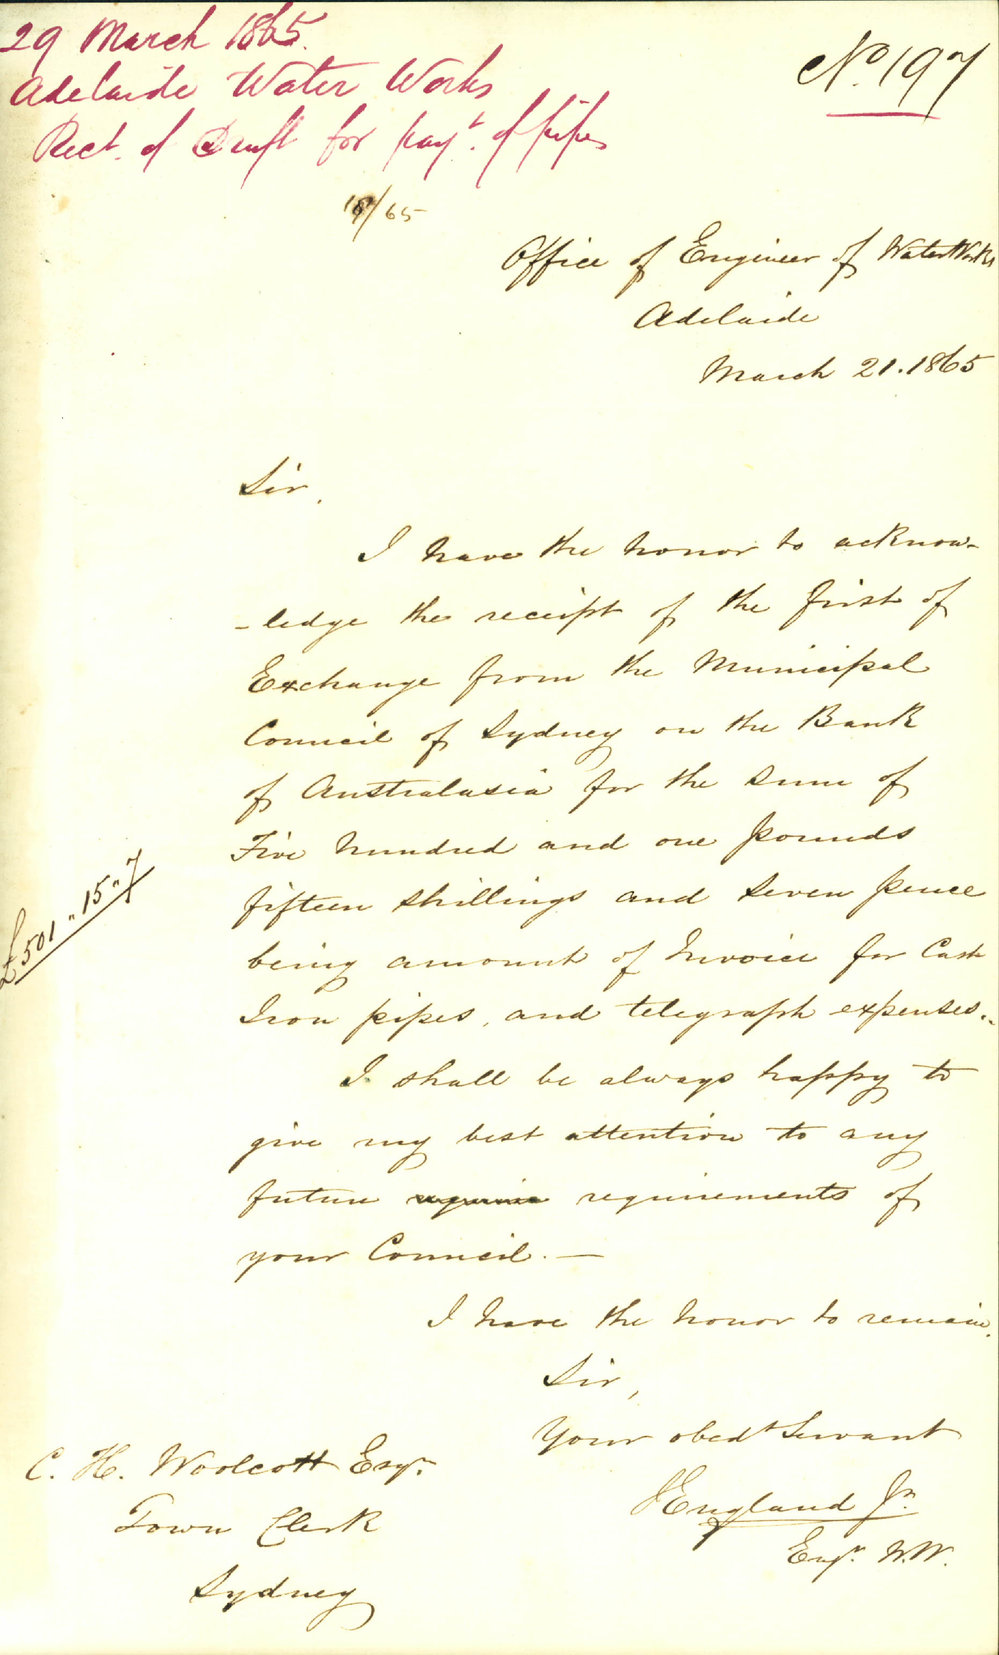 29 March 1865.
Adelaide Water Works
Rect. of Draft for payt. of pipes
No. 197
/65
Office of Engineer of Water Works
Adelaide
March 21. 1865
Sir,
I have the honor to acknow-
-ledge the receipt of the first of
Exchange from the Municipal
Council of Sydney on the Bank
of Australasia for the sum of
Five hundred and one pounds
fifteen shillings and seven pence
£501 " 15 " 7
being amount of Invoice for Cast
Iron pipes, and telegraph expenses.
I shall be always happy to
give my best attention to any
future requirements of
your Council. —
I have the honor to remain,
Sir,
Your obedt Servant
England Jn.
Engr. W.W.
C. H. Woolcott Esqr.
Town Clerk
Sydney